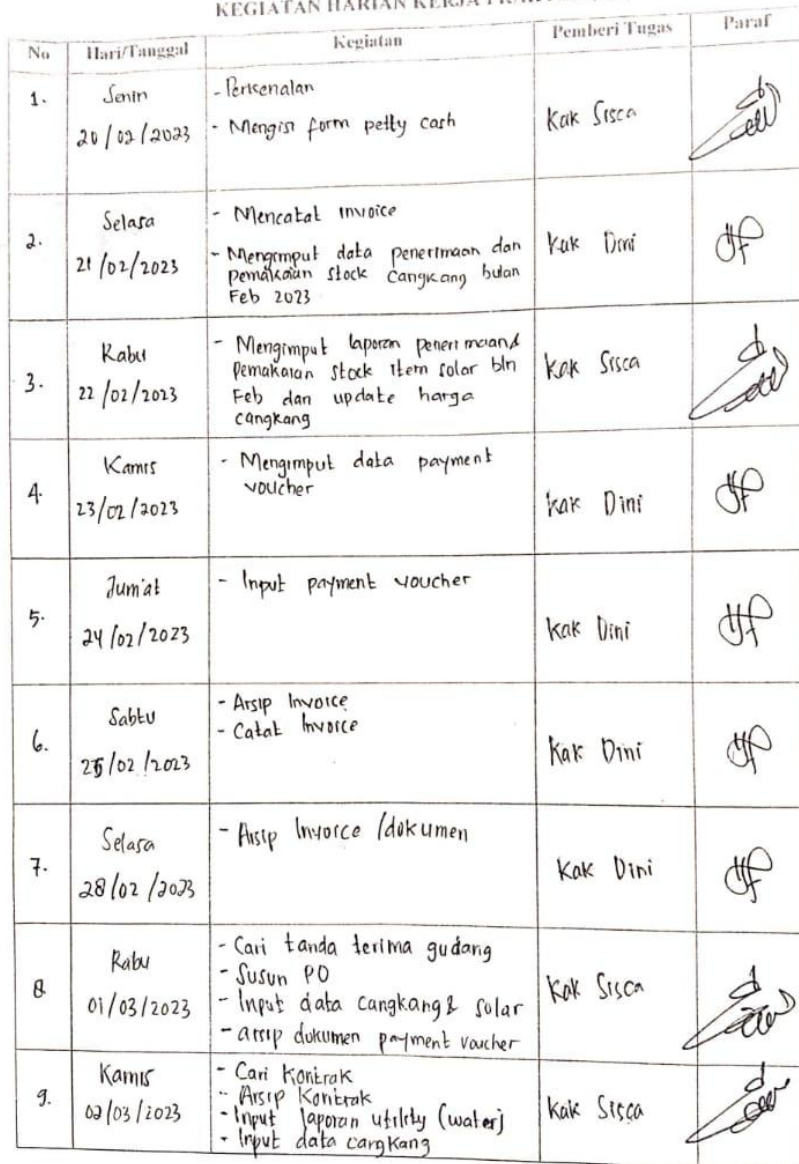 KEGIATAN HARIAN KERJA
No Hari/Tanggal Kegiatan Pemberi Tugas Paraf
1. Senin
20/02/2023
- Perkenalan
- Mengisi form petty cash
Kak Sisca
2. Selasa
21/02/2023
- Mencatat invoice
- Mengimput data penerimaan dan
pemakaian stock cangkang bulan
Feb 2023
Kak Dini
3. Rabu
22/02/2023
- Mengimput laporan penerimaan&
pemakaian stock item solar bln
Feb dan update harga
cangkang
Kak Sisca
4. Kamis
23/02/2023
- Mengimput data payment
voucher
Kak Dini
5. Jum'at
24/02/2023
- Input payment voucher
Kak Dini
6. Sabtu
25/02/2023
- Arsip Invoice
- Catat Invoice
Kak Dini
7. Selasa
28/02/2023
- Arsip Invoice/dokumen
Kak Dini
8 Rabu
01/03/2023
- Cari tanda terima gudang
- Susun PO
- Input data cangkang& solar
- arsip dokumen payment voucher
Kak Sisca
9. Kamis
02/03/2023
- Cari Kontrak
- Arsip Kontrak
- Input laporan utility (water)
- Input data cangkang
Kak Sisca